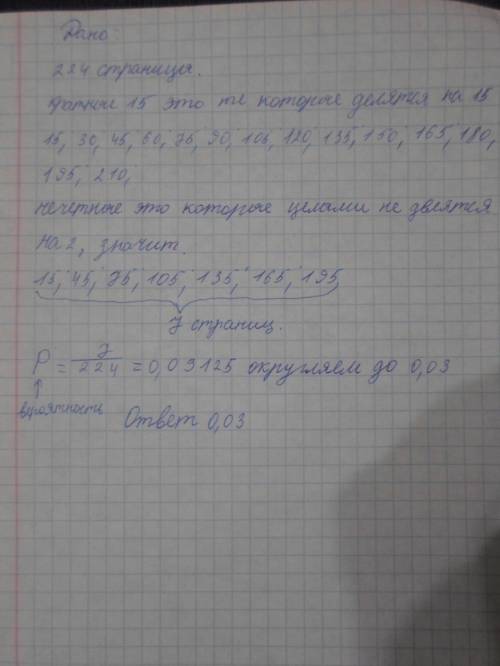 Дано:
224 страницы.
Кратные 15 это те которые делятся на 15
15, 30, 45, 60, 75, 90, 105, 120, 135, 150, 165, 180,
195, 210,
нечетные это которые целыми не делятся
на 2, значит.
15, 45, 75, 105, 135, 165, 195
7 страниц.
P = 7/224 = 0,03125 округляем до 0,03
↑
вероятность
Ответ 0,03